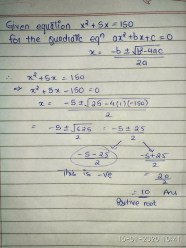 Given equation x²+5x=150
for the quadratic eqⁿ ax²+bx+c=0
x = -b±√b²-4ac / 2a
∴ x²+5x=150
⇒ x²+5x-150=0
x = -5±√25-4(1)(-150) / 2
= -5±√625 / 2 = -5±25 / 2
-5-25 / 2 -5+25 / 2
This is -ve = 20 / 2
= 10 Ans
Positive root